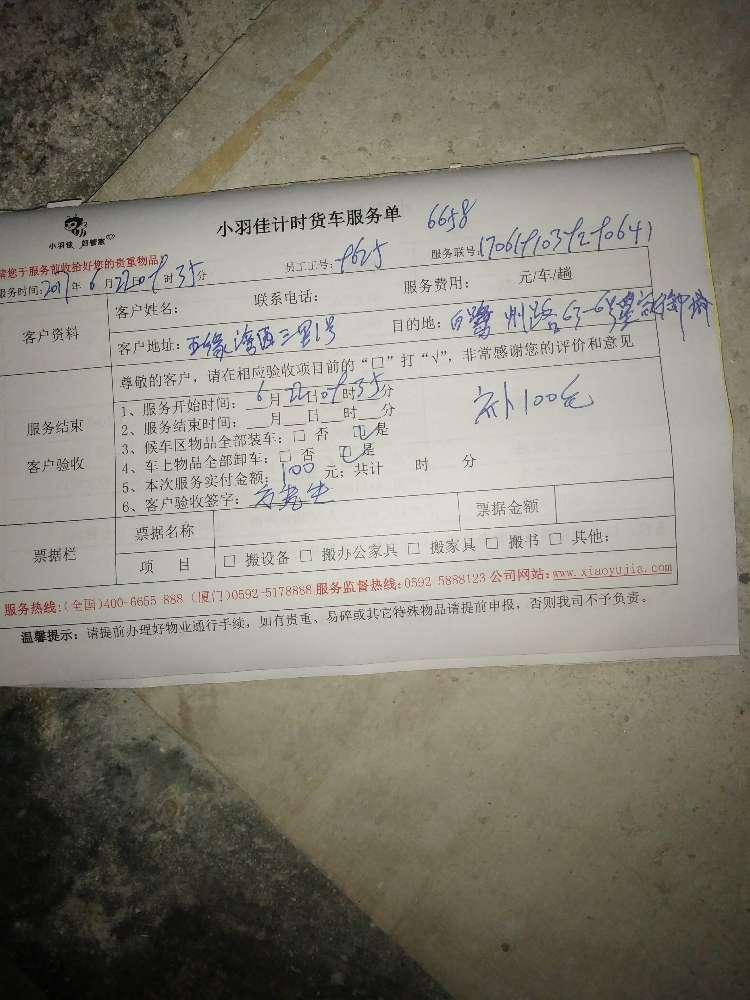 小羽佳 好管家
小羽佳计时货车服务单 6658
请您于服务前收拾好您的贵重物品
服务时间:2017年 6月 22日 09时 35分 员工工号: 9625 服务联号:
客户资料
客户姓名: 联系电话: 服务费用: 元/车/趟
客户地址: 五缘湾西三里1号 目的地: 白鹭洲路63-6号
服务结束
客户验收
尊敬的客户，请在相应验收项目前的“□”打“√”，非常感谢您的评价和意见
1、服务开始时间: 6月22日09时35分
2、服务结束时间: __月__日 时__分
3、候车区物品全部装车: □ 否 □ 是
4、车上物品全部卸车: □ 否 □ 是
5、本次服务实付金额: 100 元; 共计 时 分
6、客户验收签字: 方先生
补100元
票据栏
票据名称 票据金额
项 目 □ 搬设备 □ 搬办公家具 □ 搬家具 □ 搬书 □ 其他:
服务热线:(全国)400-6655 888 (厦门)0592-5178888 服务监督热线:0592 5888123 公司网站:www.xiaoyujia.com
温馨提示: 请提前办理好物业通行手续，如有贵重、易碎或其它特殊物品请提前申报，否则我司不予负责。